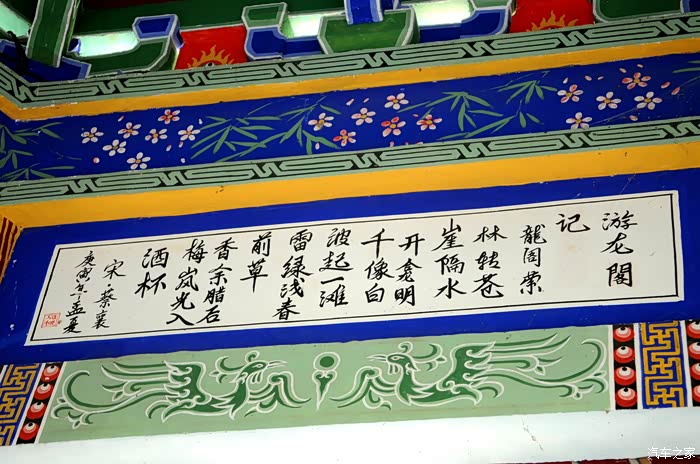 游龙閣
记
龍阁荣
林转苍
崖隔水
开龛明
千像白
波起一滩
雷绿浅春
前草
香余腊后
梅岚光入
酒杯
宋蔡襄
庚寅年孟夏
汽车之家